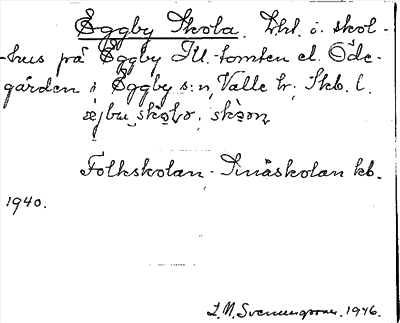 Eggby Skola. Lht. o. skol-
-hus på Eggby Ill. tomten el. Öde-
gården i Eggby s:n, Valle hr, Skb. l.
ejbu skola, skoan
Folkskolan. Småskolan kb.
1940.
L. M. Svenungsson. 1946.